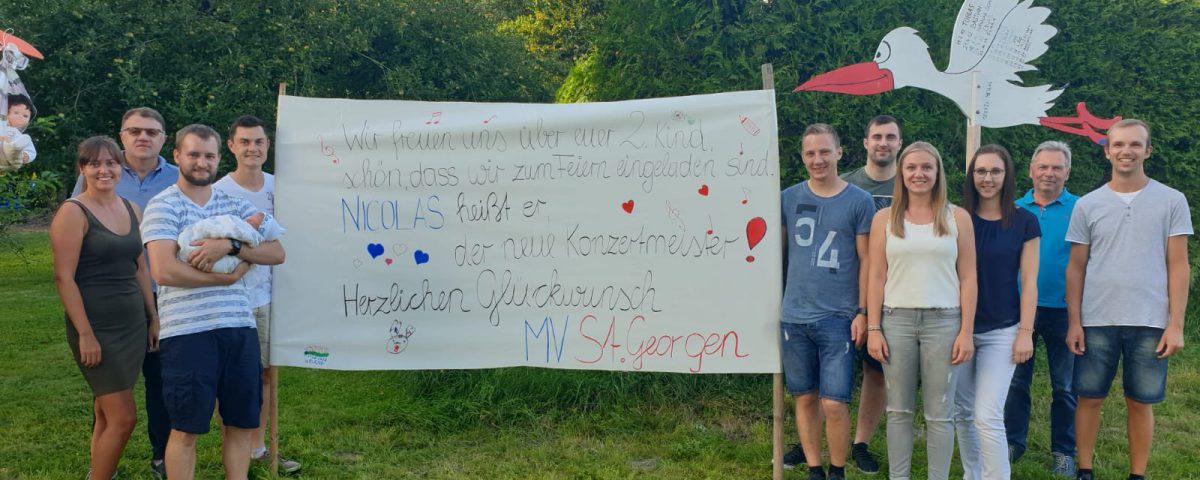 Wir freuen uns über euer 2. Kind,
schön, dass wir zum Feiern eingeladen sind.
NICOLAS heißt er,
der neue Konzertmeister!
Herzlichen Glückwunsch
MV St. Georgen
54